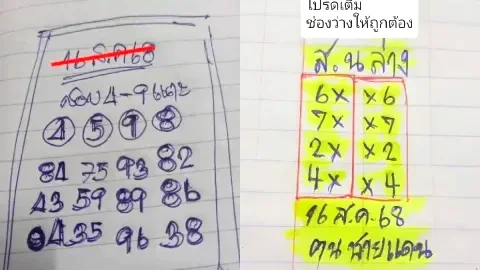 16 ส.ค 68
4 5 9 8
84 75 93 82
43 59 89 86
04 35 96 38
โปรดเติม
ช่องว่างให้ถูกต้อง
ส.น ล่าง
6x x6
7x x7
2x x2
4x x4
16 ส.ค.68
คนชายแดน